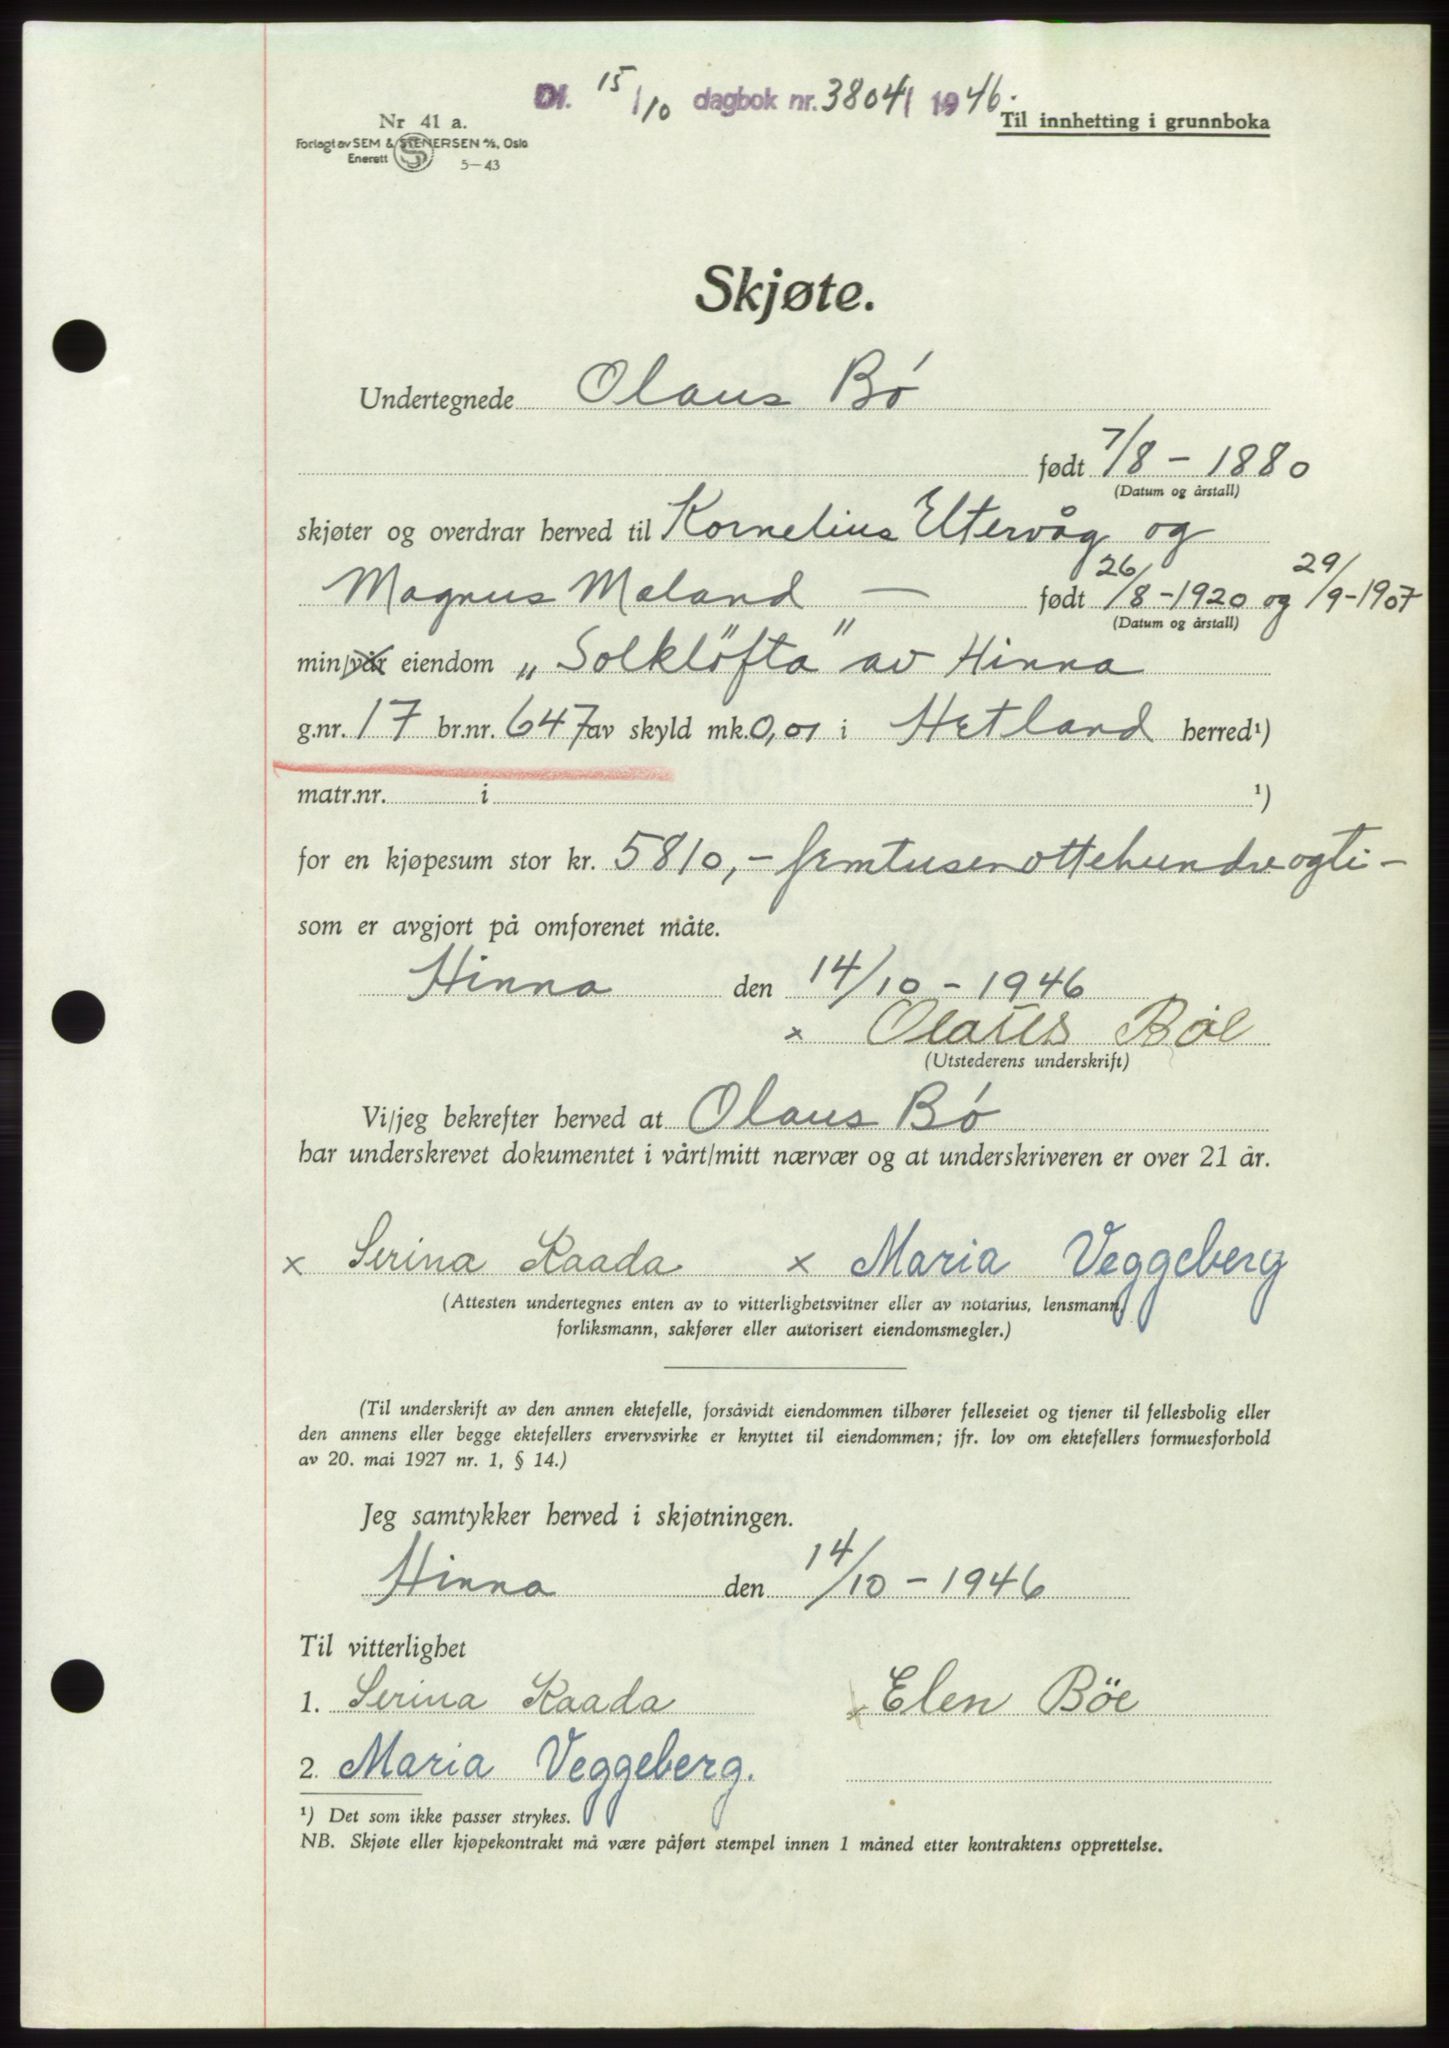 Df. 15/10 dagbok nr. 3804 1946.
Nr 41 a.
Til innhefting i grunnboka
Forlagt av SEM & STENERSEN A/S, Oslo
Enerett S 5-43
Skjøte.
Undertegnede Olaus Bó
født 7/8 - 1880
(Datum og årstall)
skjøter og overdrar herved til Kornelius Eltervåg og
Magnus Maland — født 26/8 - 1920 og 29/9 - 1907
(Datum og årstall)
min/vår eiendom „Solklöfta" av Hinna
g.nr. 17 br.nr. 647 av skyld mk. 0,01 i Hetland herred¹)
matr.nr. i ¹)
for en kjøpesum stor kr. 5810,- femtusenottehundreogti -
som er avgjort på omforenet måte.
Hinna den 14/10 - 1946
x Olaus Bøe
(Utstederens underskrift)
Vi/jeg bekrefter herved at Olaus Bó
har underskrevet dokumentet i vårt/mitt nærvær og at underskriveren er over 21 år.
x Serina Kaada x Maria Veggeberg
(Attesten undertegnes enten av to vitterlighetsvitner eller av notarius, lensmann,
forliksmann, sakfører eller autorisert eiendomsmegler.)
(Til underskrift av den annen ektefelle, forsåvidt eiendommen tilhører felleseiet og tjener til fellesbolig eller
den annens eller begge ektefellers ervervsvirke er knyttet til eiendommen; jfr. lov om ektefellers formuesforhold
av 20. mai 1927 nr. 1, § 14.)
Jeg samtykker herved i skjøtningen.
Hinna den 14/10 - 1946
Til vitterlighet
1. Serina Kaada x Elen Böe
2. Maria Veggeberg.
¹) Det som ikke passer strykes.
NB. Skjøte eller kjøpekontrakt må være påført stempel innen 1 måned etter kontraktens opprettelse.